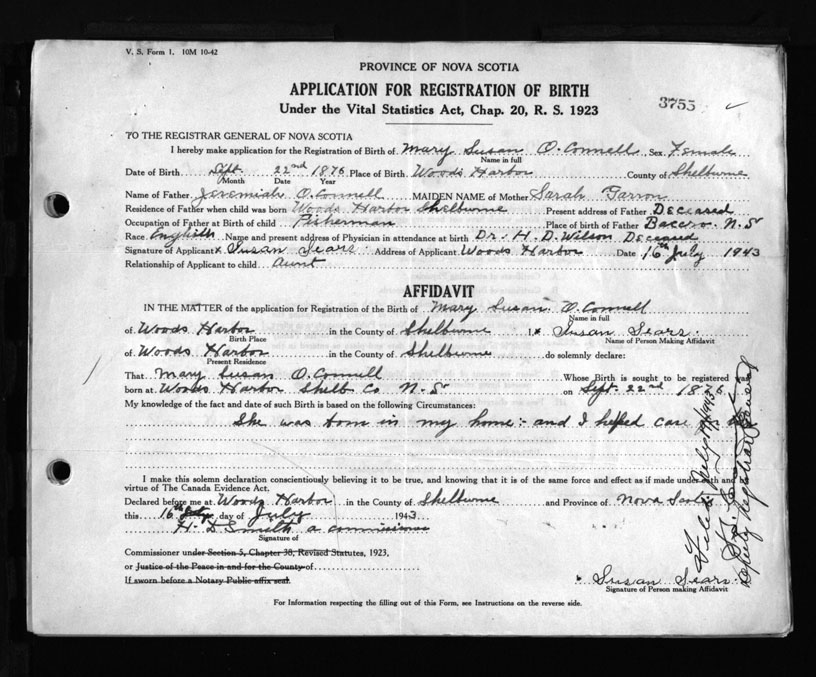 V. S. Form 1. 10M 10-42
PROVINCE OF NOVA SCOTIA
APPLICATION FOR REGISTRATION OF BIRTH
3755
Under the Vital Statistics Act, Chap. 20, R. S. 1923
TO THE REGISTRAR GENERAL OF NOVA SCOTIA
I hereby make application for the Registration of Birth of Mary Susan O.Connell Sex Female
Name in full
Date of Birth Sept. 22nd 1876 Place of Birth Woods Harbor County of Shelburne
Month Date Year
Name of Father Jeremiah O.Connell MAIDEN NAME of Mother Sarah
Residence of Father when child was born Woods Harbor Shelburne Present address of Father Deceased
Occupation of Father at Birth of child Fisherman Place of birth of Father N.S
Race English Name and present address of Physician in attendance at birth Dr. H. D. Wilson Deceased
Signature of Applicant x Susan Sears Address of Applicant Woods Harbor Date 16th July 1943
Relationship of Applicant to child Aunt
AFFIDAVIT
IN THE MATTER of the application for Registration of the Birth of Mary Susan O.Connell
Name in full
of Woods Harbor in the County of Shelburne I x Susan Sears.
Birth Place Name of Person Making Affidavit
of Woods Harbor in the County of Shelburne do solemnly declare:
Present Residence
That Mary Susan O.Connell Whose Birth is sought to be registered
born at Woods Harbor Shelb. Co N.S on Sept. 22nd 1876
My knowledge of the fact and date of such Birth is based on the following Circumstances:
She was born in my home:- and I helped care for
I make this solemn declaration conscientiously believing it to be true, and knowing that it is of the same force and effect as if made under oath and by
virtue of The Canada Evidence Act.
Declared before me at Woods Harbor in the County of Shelburne and Province of Nova Scotia
this 16th day of July 1943
H. D Smith a commissioner
Signature of
Commissioner under Section 5, Chapter 38, Revised Statutes, 1923,
or Justice of the Peace in and for the County of
If sworn before a Notary Public affix seal.
x Susan Sears.
Signature of Person making Affidavit
For Information respecting the filling out of this Form, see Instructions on the reverse side.
Filed July 1943
Deputy Registrar General